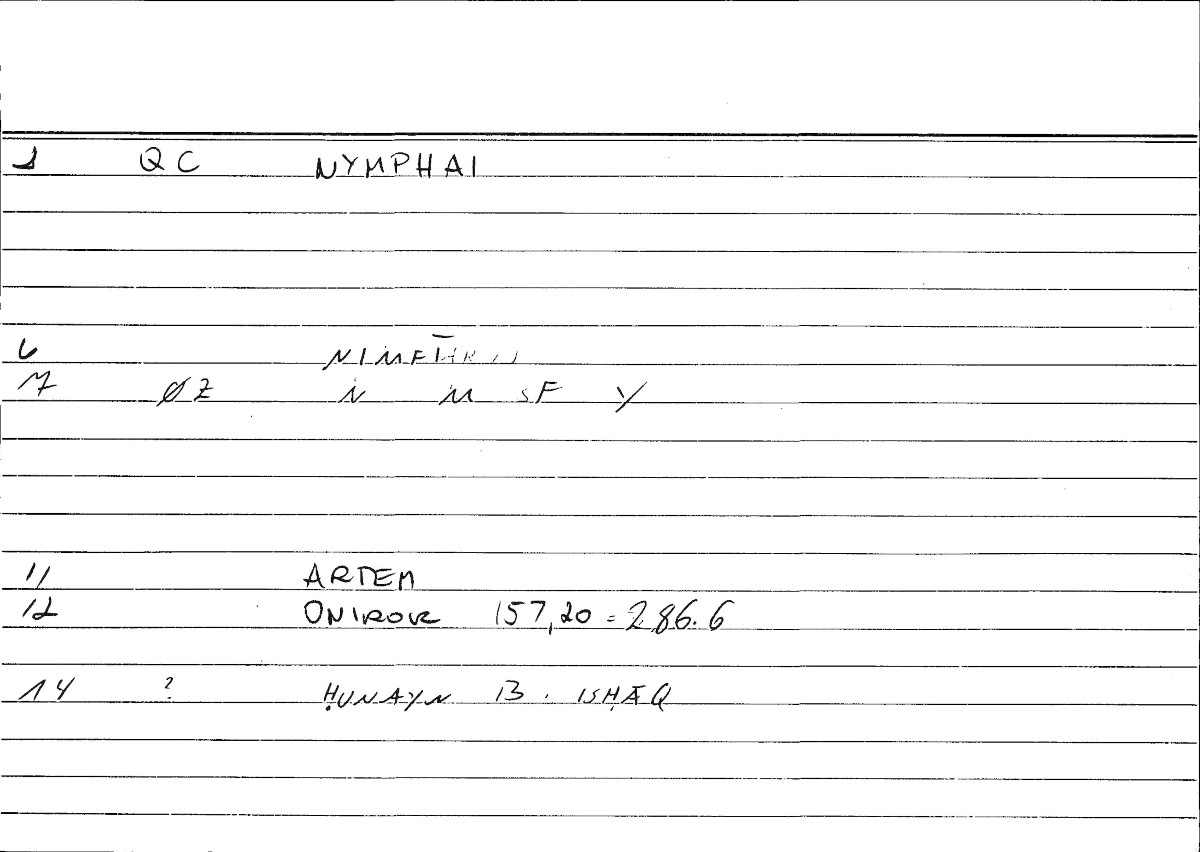 1 QC NYMPHAI
6
7 ØZ N M SF Y
11 ARTEM
12 ONIROK 157,20 = 286.6
14 ? ḤUNAYN B. ISḤĀQ